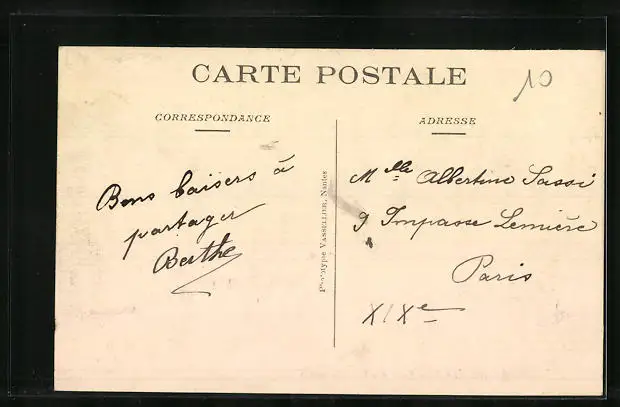 CARTE POSTALE
10
CORRESPONDANCE
ADRESSE
Bons baisers à
partager
Berthe
Phototype VASSELLIER, Nantes
Mlle Albertine Sassi
9 Impasse Lemière
Paris
XIXe